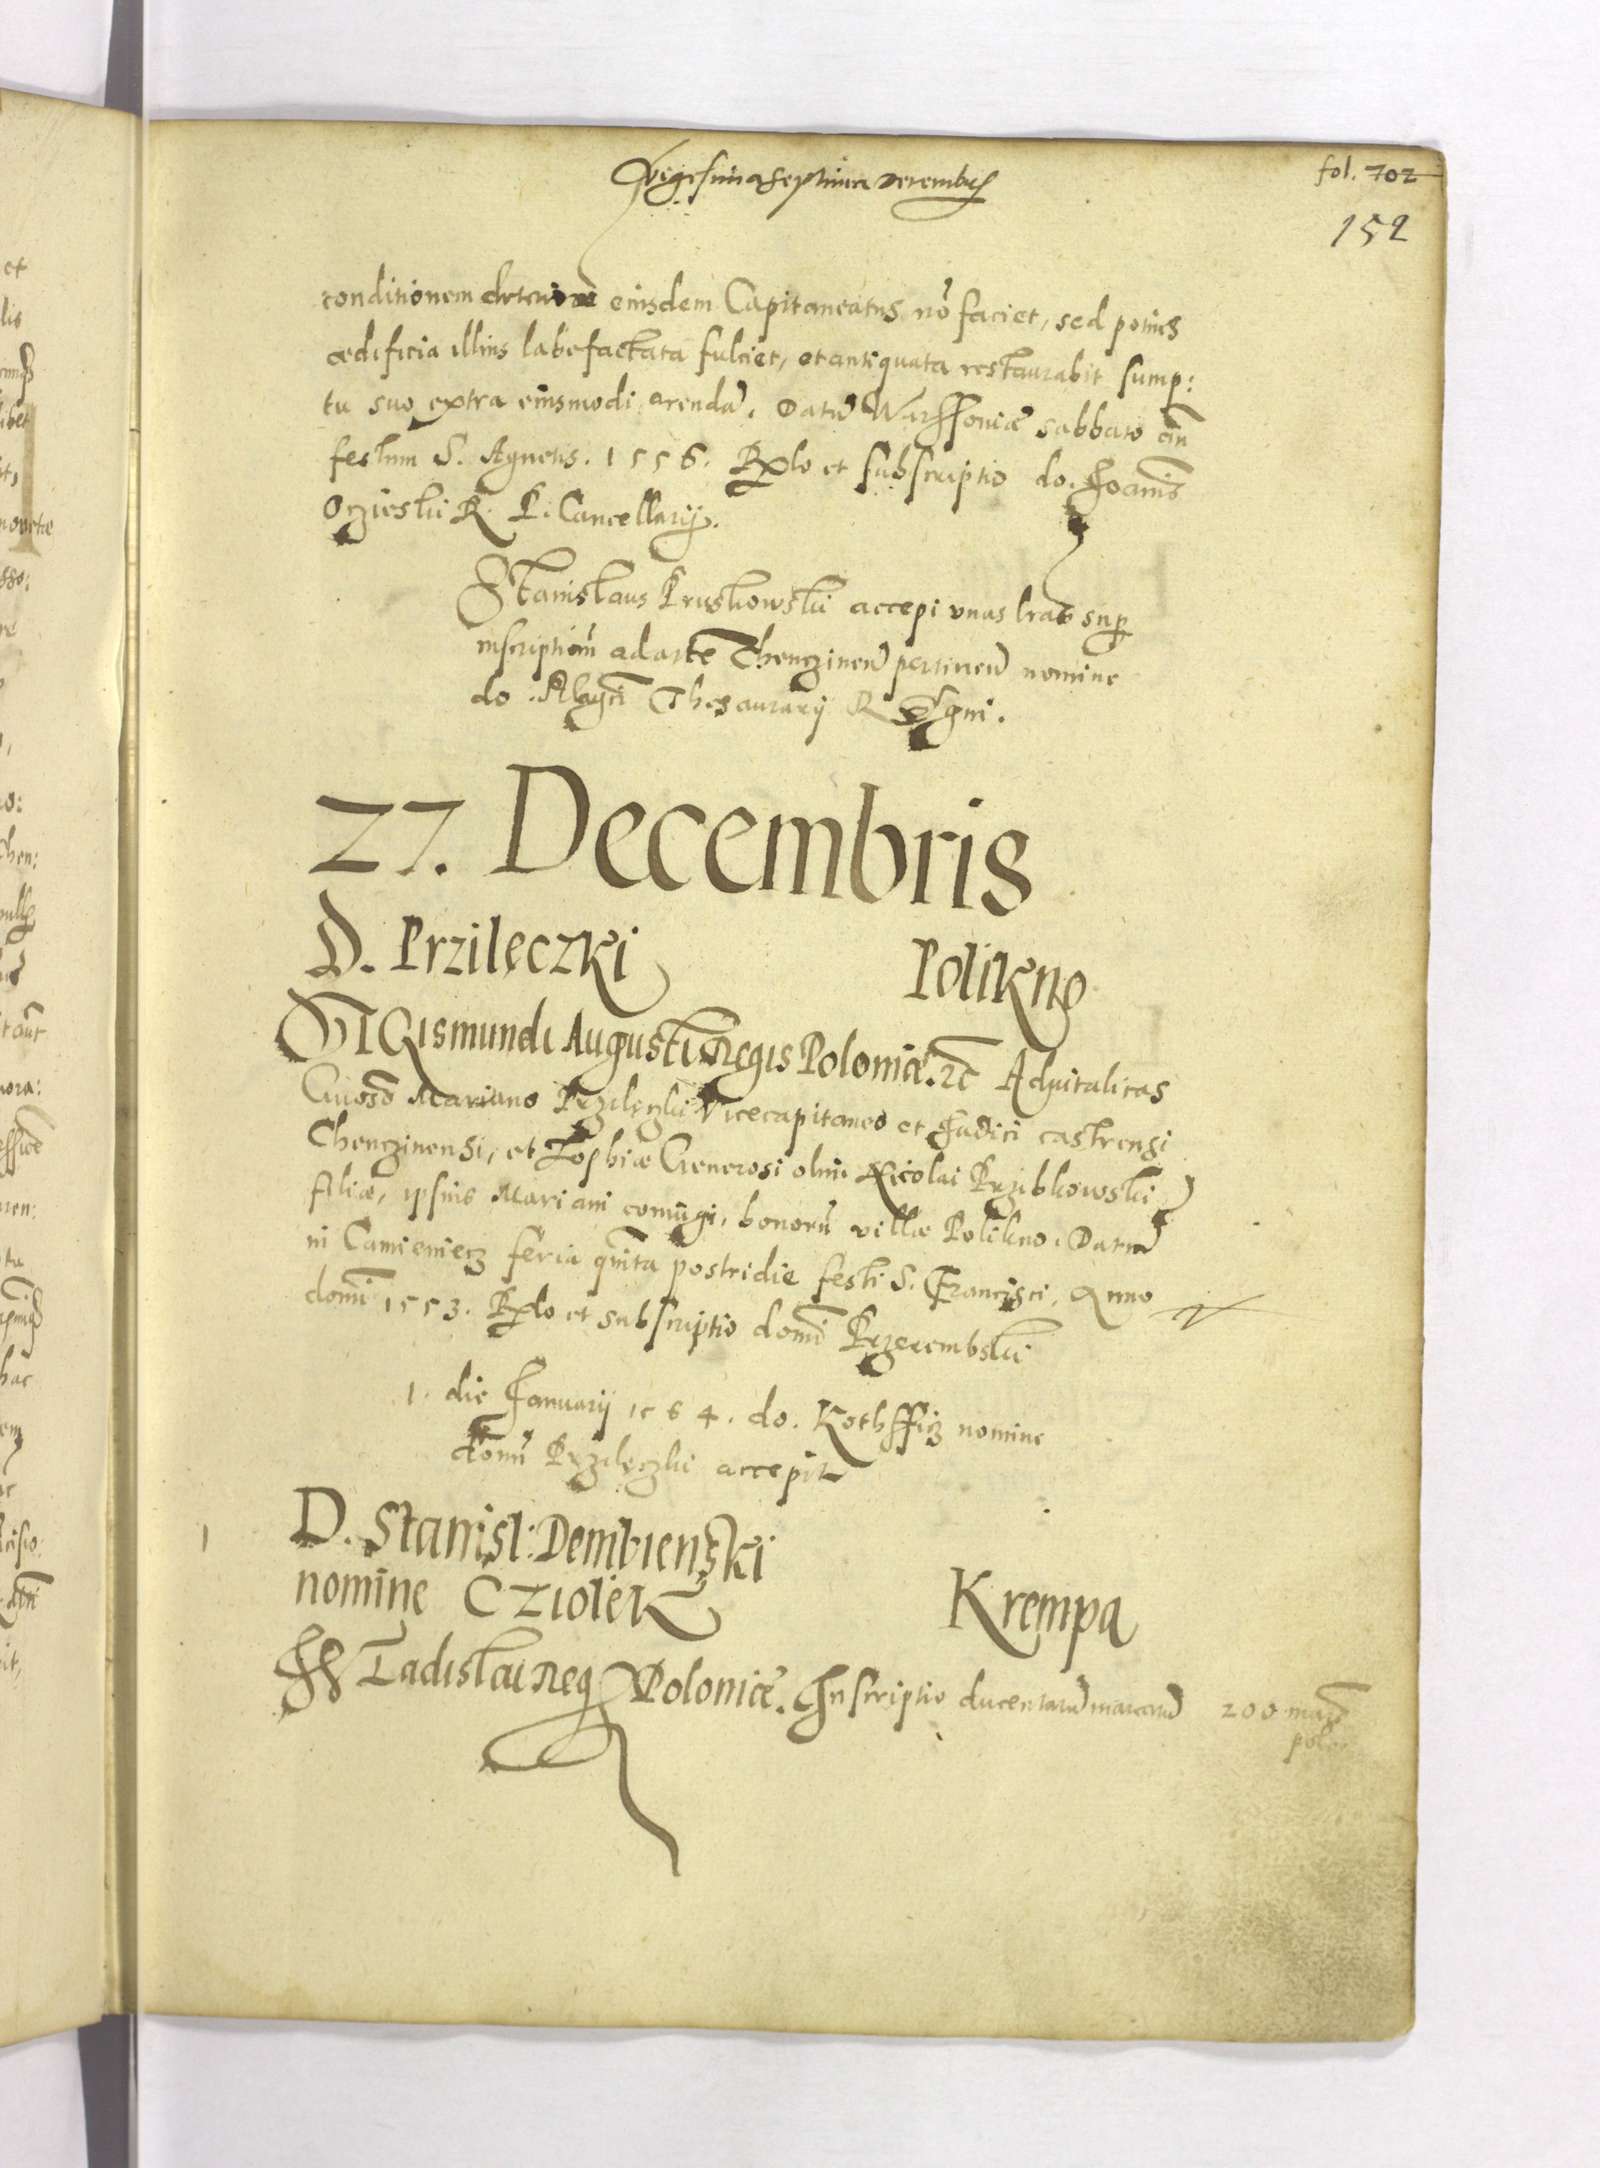 Vigesima septima Decembris
fol. 702
152
conditionem deteriorē eiusdem Capitaneatus nō faciet, sed potius
ædificia illius labefactata fulciet, et antiquata restaurabit sump:
tu suo extra eiusmodi arendā. Datū Warssouiæ sabbato añ
festum S. Agnetis. 1556. Rlo et subscriptio do. Joānis
Oczieski R. P. Cancellarij.
Stanislaus Kruskowski accepi vnas lras sup
inscriptioñ ad arcē Chenczineñ pertineñ nomine
do. Thesaurarij Regni.
27. Decembris
D. Przileczki
Polikno
SIGismundi Augusti Regis Poloniæ. ꝛc Aduitalitas
Gñoso Mariano Przileczki Vicecapitaneo et Judici castrensi
Chenczinensi, et Zophiæ Generosi olim Nicolai Przibkowski
filiæ, ipsius Mariani coniugi, bonorū villæ Polikno. Datū
in Camieniecz feria quīta postridie festi S. Francisci, Anno
domī 1553. Rlo et subscriptio domī Przerembski
1. die Januarij 1564. do. Kothssicz nomine
domī Przileczki accepit
1
D. Stanisl: Dembienski
nomine Cziolek
Krempa
Wladislai Reg Poloniæ. Inscriptio ducentarū marcarū
200 marc
pol.